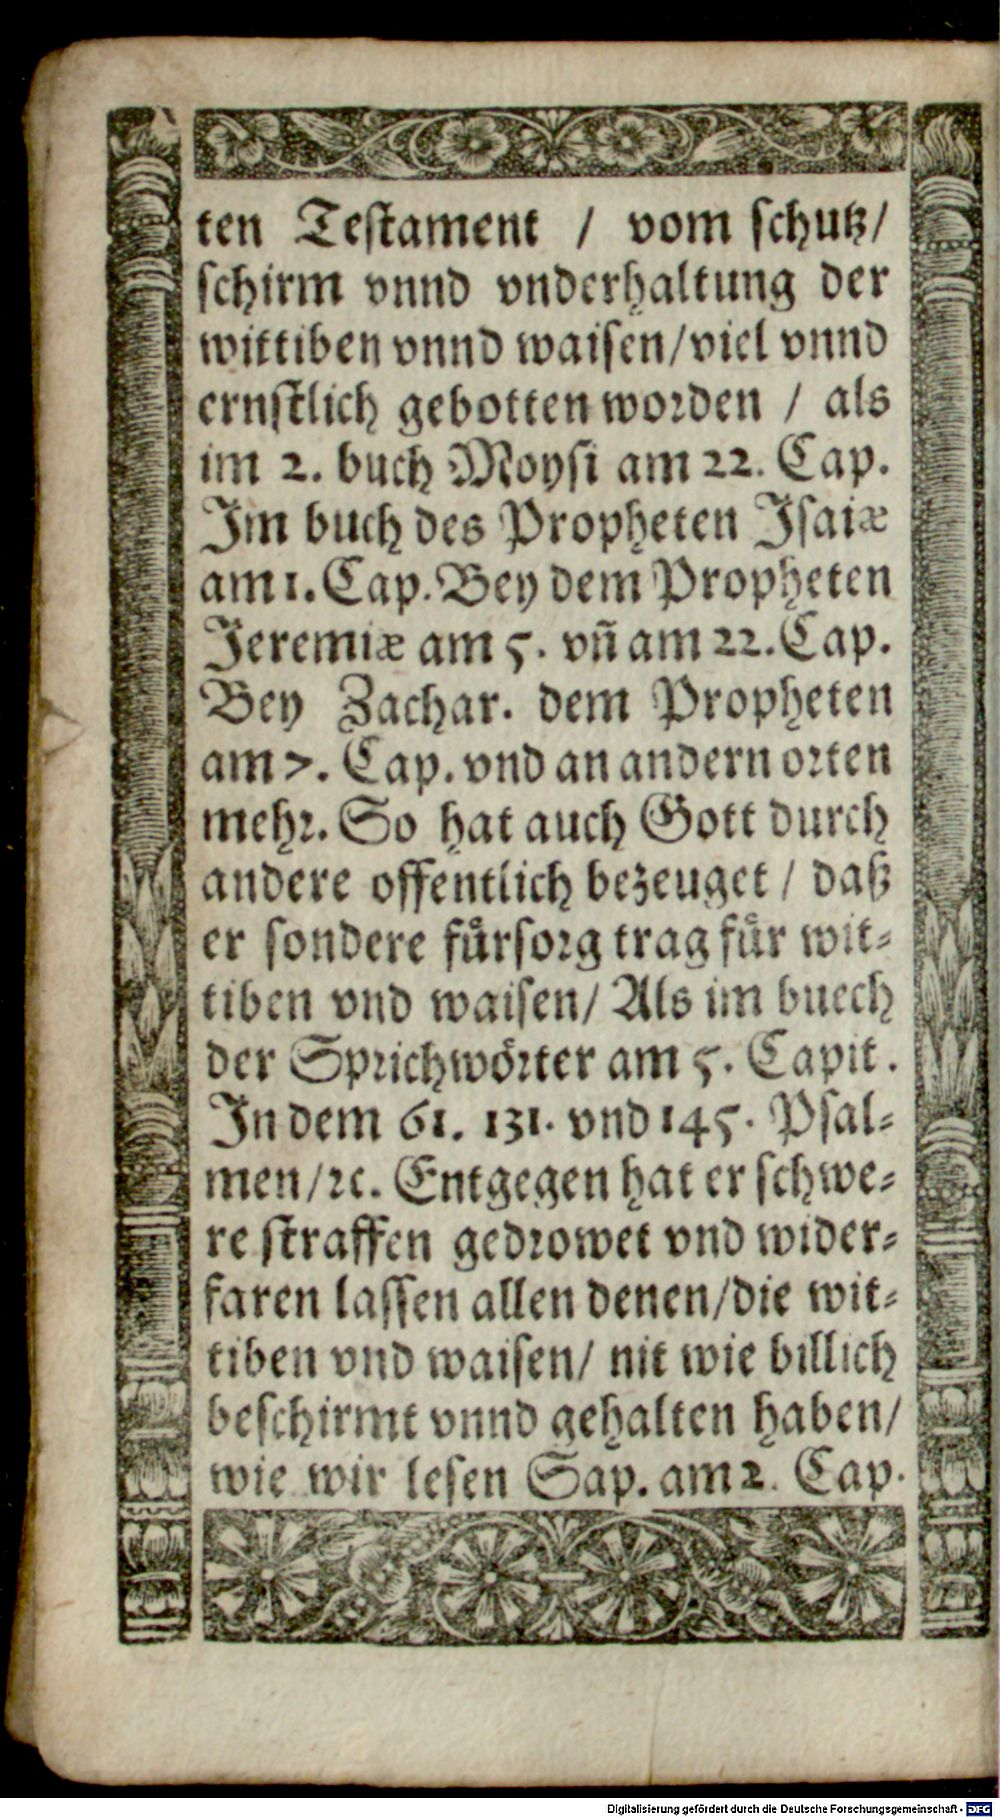 ten Testament / vom schutz/
schirm vnnd vnderhaltung der
wittiben vnnd waisen/viel vnnd
ernstlich gebotten worden / als
im 2. buch Moysi am 22. Cap.
Im buch des Propheten Isaiæ
am 1. Cap. Bey dem Propheten
Jeremiæ am 5. vñ am 22. Cap.
Bey Zachar. dem Propheten
am 7. Cap. vnd an andern orten
mehr. So hat auch Gott durch
andere offentlich bezeuget / daß
er sondere fürsorg trag für wit-
tiben vnd waisen/ Als im buech
der Sprichwörter am 5. Capit.
In dem 61. 131. vnd 145. Psal-
men/ꝛc. Entgegen hat er schwe-
re straffen gedrowet vnd wider-
faren lassen allen denen/die wit-
tiben vnd waisen/ nit wie billich
beschirmt vnnd gehalten haben/
wie wir lesen Sap. am 2. Cap.
Digitalisierung gefördert durch die Deutsche Forschungsgemeinschaft - DFG